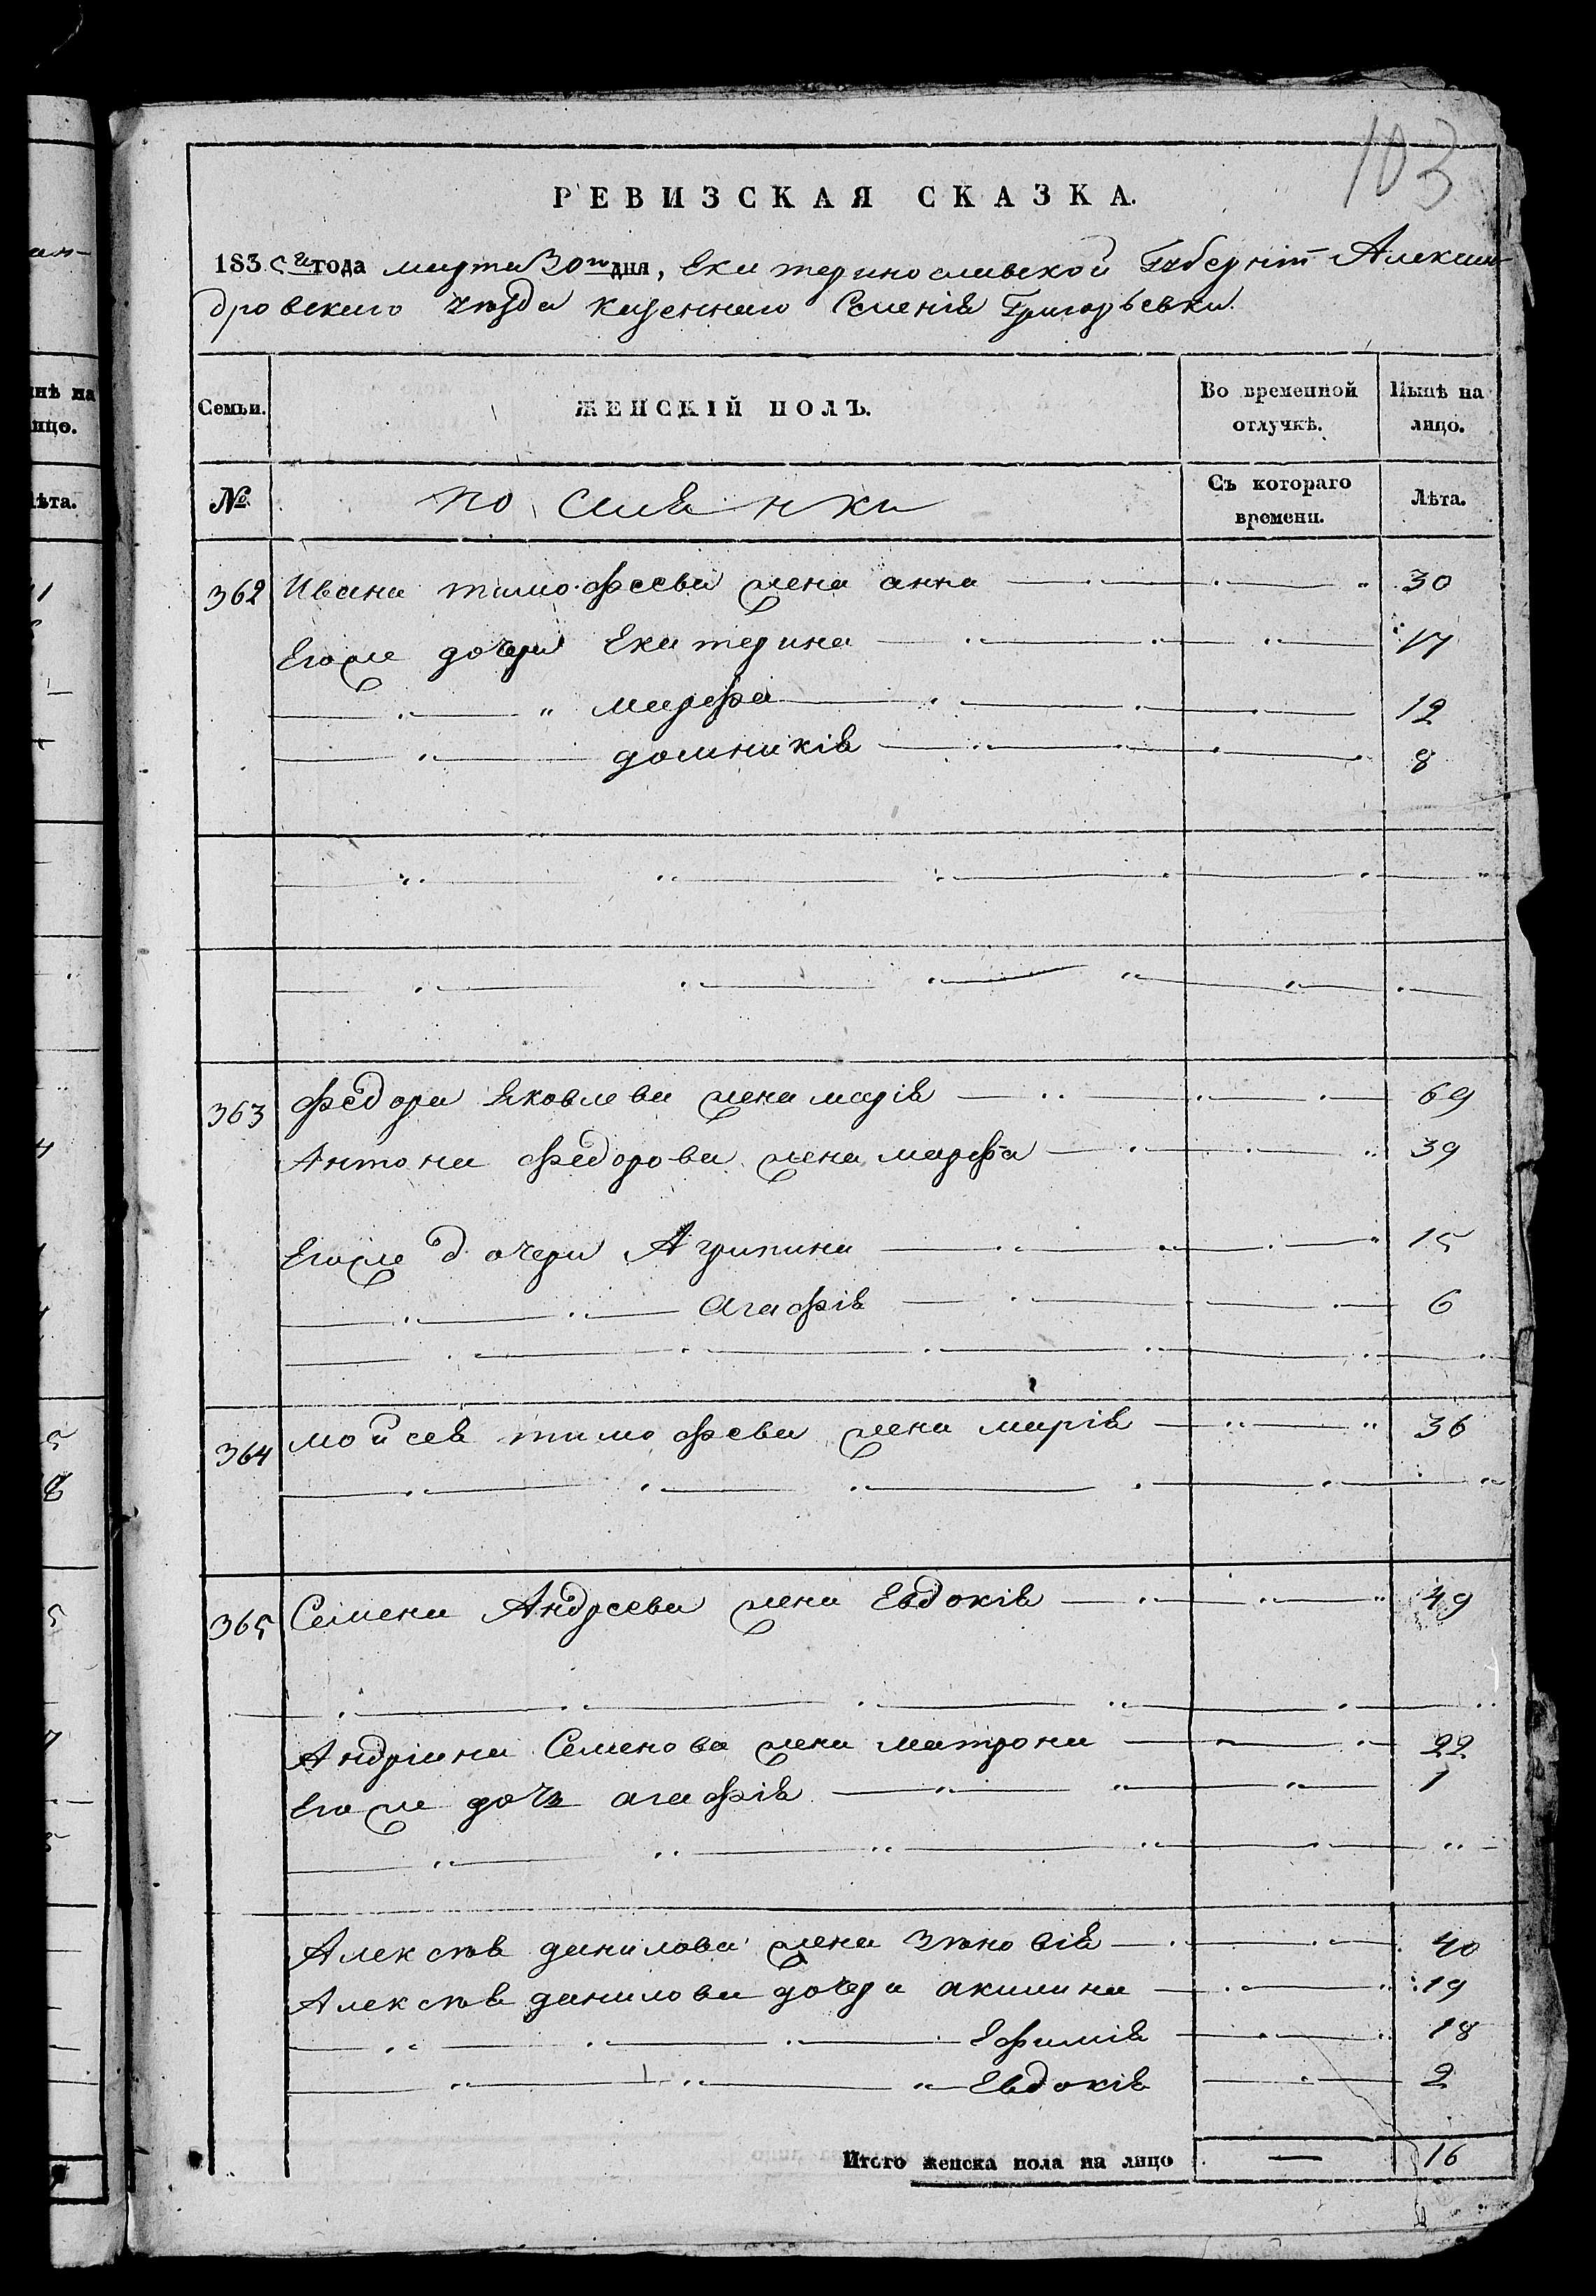 103
РЕВИЗСКАЯ СКАЗКА.
1835 го года марта 30 го дня, Екатеринославской Губерніи Алексан-
дровскаго уѣзда казеннаго Селенія Григорьевки.
Семьи.
ЖЕНСКІЙ ПОЛЪ.
Во временной отлучкѣ.
Нынѣ на лицо.
№
поселянки
Съ котораго времени.
Лѣта.
362 Ивана тимофеева жена анна 30
Егоже дочери Екатерина 17
марфа 12
домникія 8
363 Федора Яковлева жена марія 69
Антона Федорова жена марфа 39
Егоже дочери Агрипина 15
Агафія 6
364 мойсея тимофеева жена марія 36
365 Семена Андреева жена Евдокія 49
Андріана Семенова жена матрона 22
Егоже дочь агафія 1
Алексѣя данилова жена Зѣновія 40
Алексѣя данилова дочери акилина 19
Ефимія 18
Евдокія 2
Итого женска пола на лицо — 16